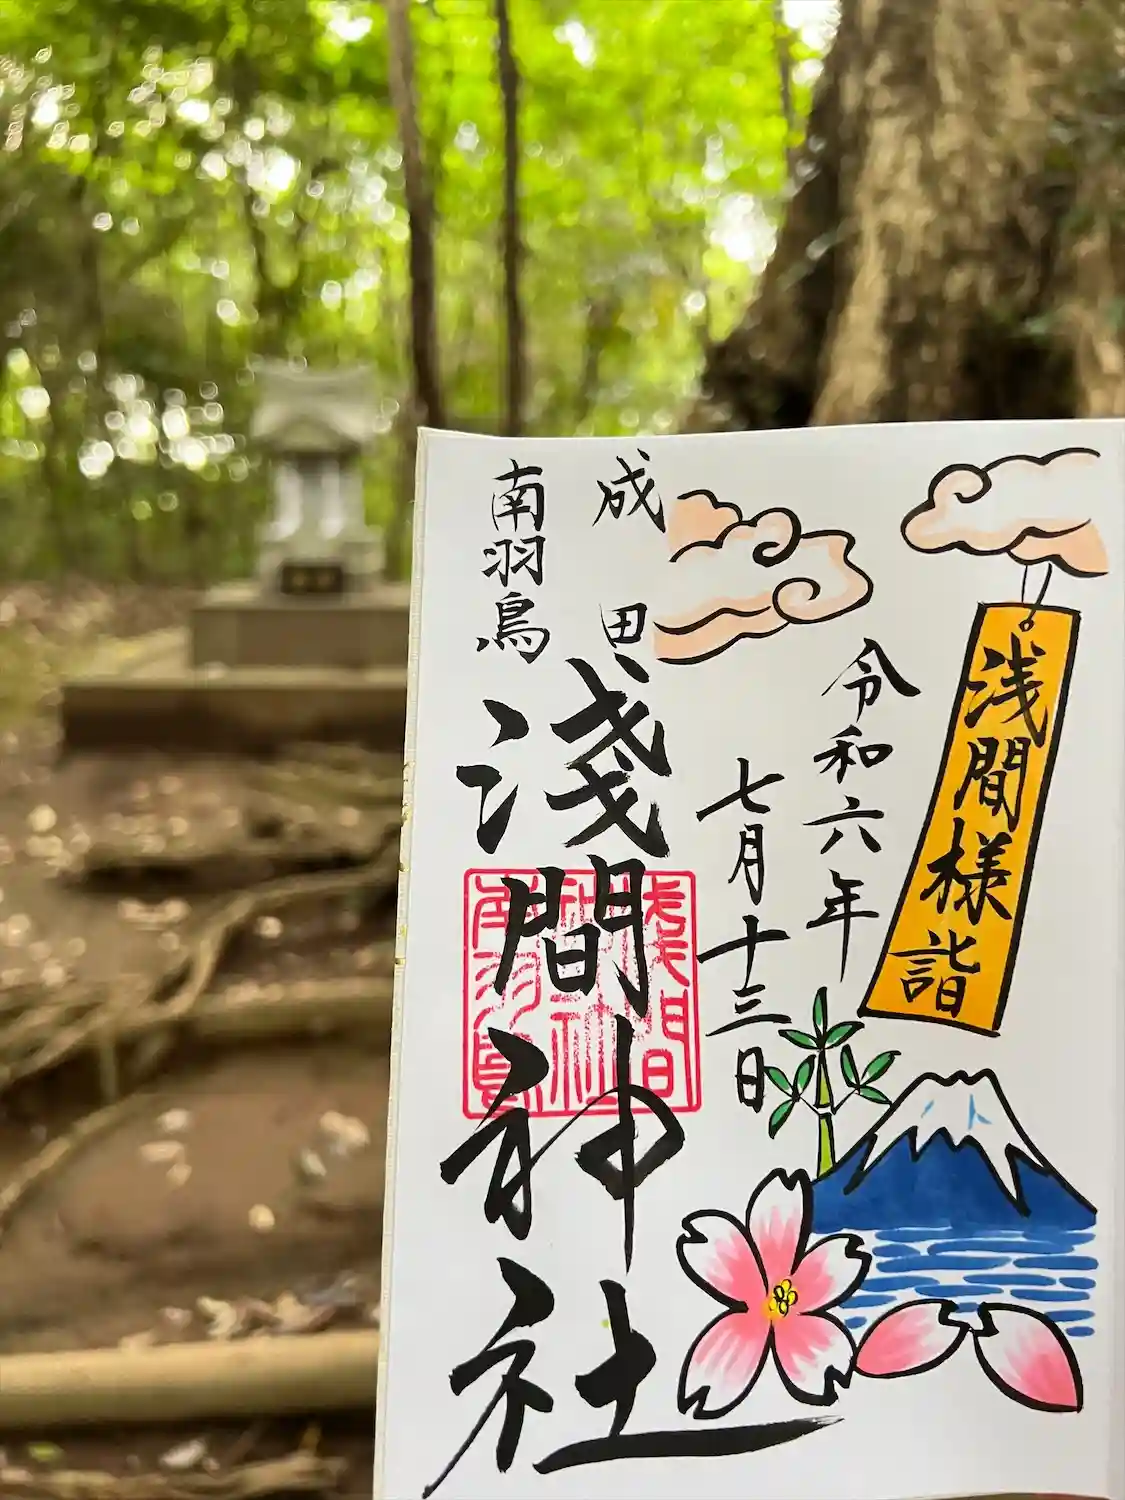 浅間様詣
令和六年
七月十三日
成田
南羽鳥
淺間神社
浅間
神社
南羽鳥